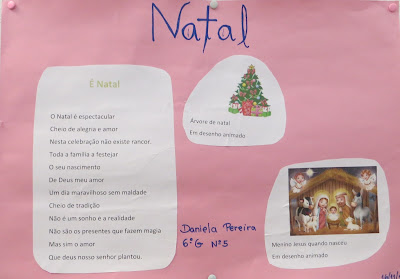 Natal
É Natal
O Natal é espectacular
Cheio de alegria e amor
Nesta celebração não existe rancor.
Toda a familia a festejar
O seu nascimento
De Deus meu amor
Um dia maravilhoso sem maldade
Cheio de tradição
Não é um sonho e a realidade
Não são os presentes que fazem magia
Mas sim o amor
Que deus nosso senhor plantou.
Árvore de natal
Em desenho animado
Daniela Pereira
6ºG Nº5
Menino Jesus quando nasceu
Em desenho animado